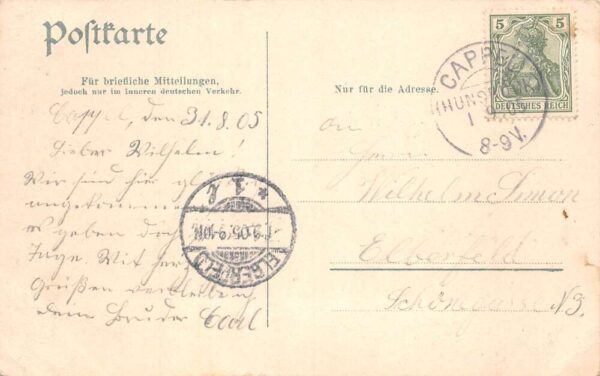 Postkarte
Für briefliche Mitteilungen,
jedoch nur im inneren deutschen Verkehr.
Nur für die Adresse.
5 5
DEUTSCHES REICH
CAPPEL
(HUNSRÜCK)
8-9V.
Cappel, den 31.8.05
Lieber Wilhelm!
Wir sind hier
angekommen
es geben dir
Tage. Mit
Grüßen verbleibe ich
dein Bruder Carl
* 1 l
1.9.05.9-10N.
ELBERFELD
An
Herrn
Wilhelm Simon
Elberfeld